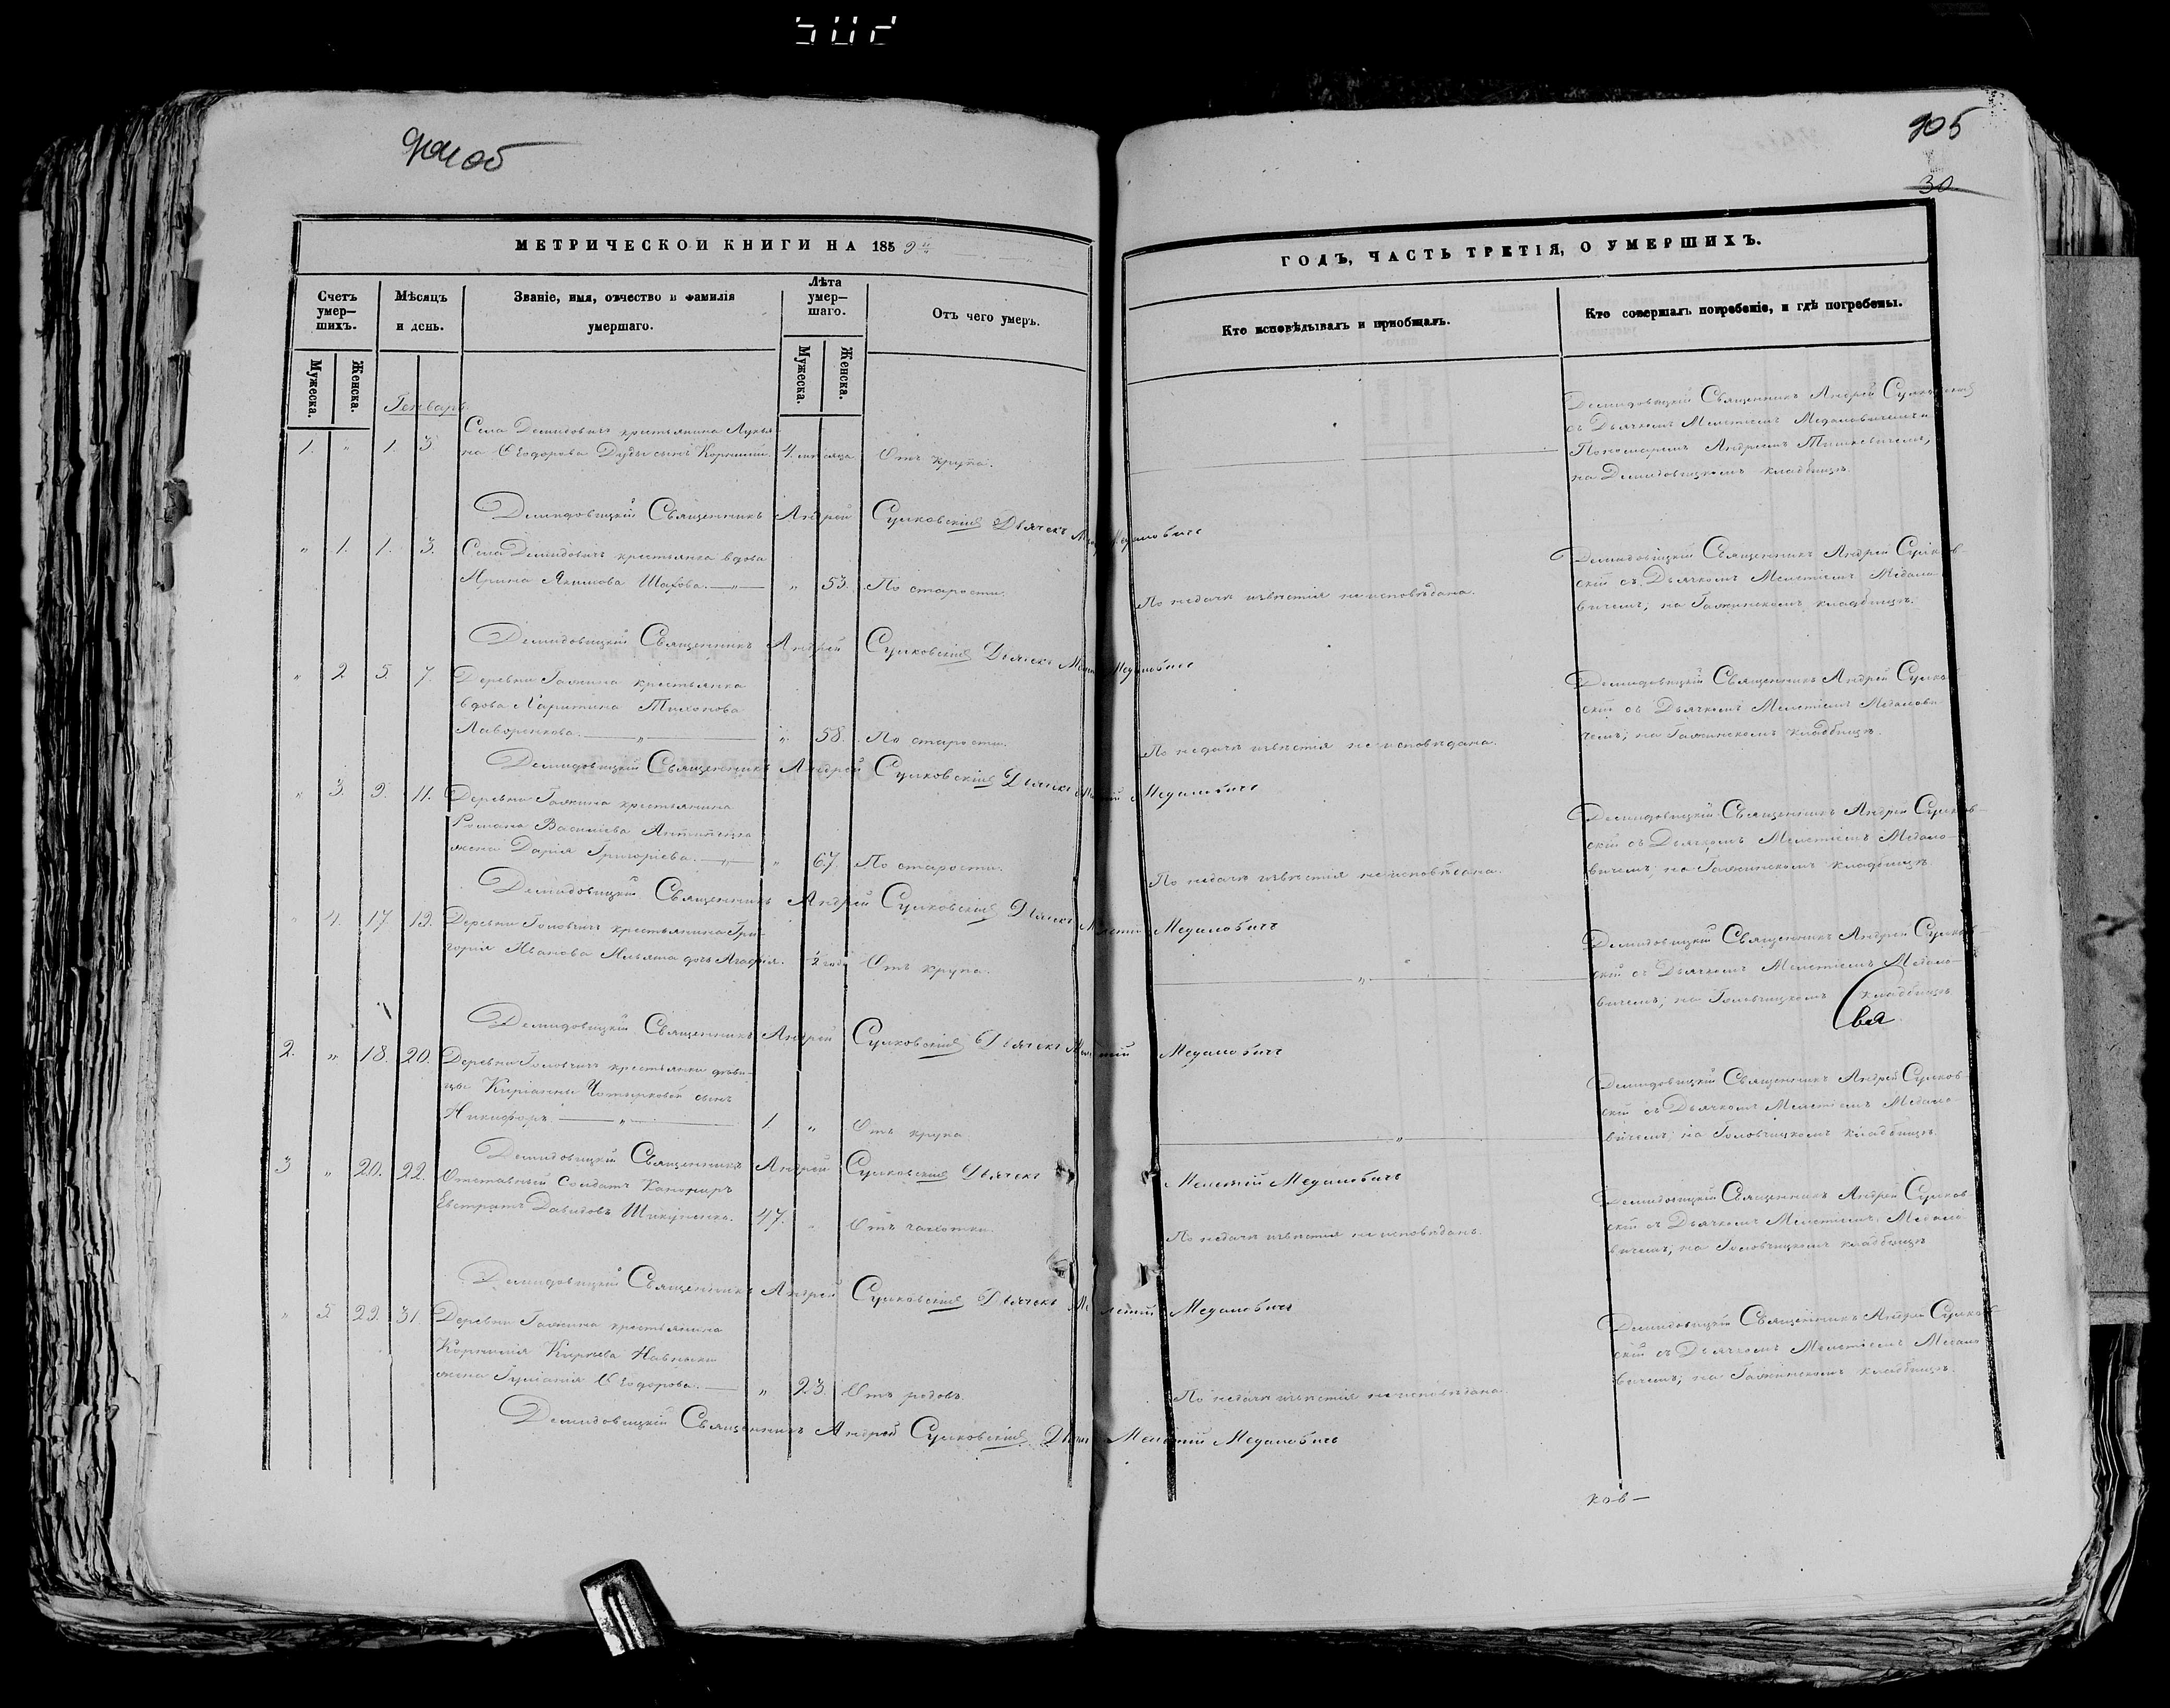 904 об
905
30
МЕТРИЧЕСКОЙ КНИГИ НА 1859
ГОДЪ, ЧАСТЬ ТРЕТІЯ, О УМЕРШИХЪ.
Счетъ умер—шихъ.
Мѣсяцъ и день.
Званіе, имя, отчество и фамилія умершаго.
Лѣта умер—шаго.
Отъ чего умеръ.
Кто исповѣдывалъ и пріобщалъ.
Кто совершалъ погребеніе, и гдѣ погребены.
Мужеска.
Женска.
Мужеска.
Женска.
Генварь.
1. " 1. 3.
Села Демидовичъ крестьянина Лукья-
на Ѳеодорова Дуды сынъ Корнилій. 4. мѣсяца Отъ крупа.
Демидовицкій Священникъ Андрей
съ Дьячкомъ Мелетіемъ Медаловичемъ и
Пономаремъ Андреемъ
на Демидовицкомъ кладбищѣ.
Демидовицкій Священникъ Андрей Сулковскій Дьячекъ Медаловичъ
" 1. 1. 3. Села Демидовичъ крестьянка вдова
Ирина Якимова " 53. По старости.
По недачѣ извѣстія не исповѣдана.
Демидовицкій Священникъ Андрей Сулков-
скій съ Дьячкомъ Мелетіемъ Медало-
вичемъ, на кладбищѣ.
Демидовицкій Священникъ Андрей Сулковскій Дьячекъ Медаловичъ
" 2 5. 7. Деревни крестьянка
вдова Харитина Тихонова
" 58. По старости.
По недачѣ извѣстія не исповѣдана.
Демидовицкій Священникъ Андрей Сулков
скій съ Дьячкомъ Мелетіемъ Медалови
чемъ; на кладбищѣ.
Демидовицкій Священникъ Андрей Сулковскій Дьячекъ Медаловичъ
" 3. 9. 11. Деревни крестьянина
Романа Василіева
жена Дарія Григоріева. " 67. По старости.
По недачѣ извѣстія не исповѣдана.
Демидовицкій Священникъ Андрей Сулков
скій съ Дьячкомъ Мелетіемъ Медало-
вичемъ; на кладбищѣ.
Демидовицкій Священникъ Андрей Сулковскій Дьячекъ Мелетій Медаловичъ
" 4. 17. 19. Деревни Головчичъ крестьянина Гри-
горія Иванова дочь Агафія. 2 года Отъ крупа.
Демидовицкій Священникъ Андрей Сулков
скій съ Дьячкомъ Мелетіемъ Медало-
вичемъ; на Головчицкомъ кладбищѣ
Демидовицкій Священникъ Андрей Сулковскій Дьячекъ Мелетій Медаловичъ
2. " 18. 20. Деревни Головчичъ крестьянки дѣви-
цы сынъ
Никифоръ. 1 " Отъ крупа
Демидовицкій Священникъ Андрей Сулков
скій съ Дьячкомъ Мелетіемъ Медало
вичемъ; на Головчицкомъ кладбищѣ.
Демидовицкій Священникъ Андрей Сулковскій Дьячекъ Мелетій Медаловичъ
3 " 20. 22. Отставный Солдатъ
Евстратъ Давидовъ 47. Отъ чахотки.
По недачѣ извѣстія не исповѣданъ.
Демидовицкій Священникъ Андрей Сулков
скій съ Дьячкомъ Мелетіемъ Медало
вичемъ; на Головчицкомъ кладбищѣ
Демидовицкій Священникъ Андрей Сулковскій Дьячекъ Мелетій Медаловичъ
" 5. 29. 31. Деревни крестьянина
Корнилія
жена Ѳеодорова. " 23. Отъ родовъ.
По недачѣ извѣстія не исповѣдана.
Демидовицкій Священникъ Андрей Сулков
скій съ Дьячкомъ Мелетіемъ Медало
вичемъ; на кладбищѣ.
Демидовицкій Священникъ Андрей Сулковскій Мелетій Медаловичъ
ков—